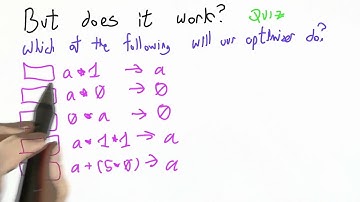 But does it work? Quiz
Which of the following will our optimizer do?
a * 1 → a
a * 0 → 0
0 * a → 0
a * 1 * 1 → a
a + (5 * 0) → a